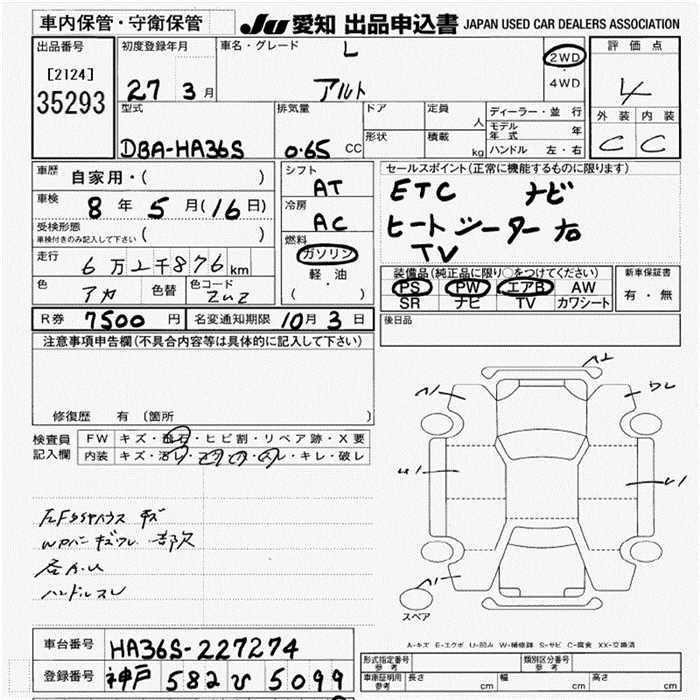 車内保管・守衛保管
JU 愛知 出品申込書 JAPAN USED CAR DEALERS ASSOCIATION
出品番号 [2124] 35293
初度登録年月 27 3月
車名・グレード L アルト
2WD ・ 4WD
評価点 4
外装 内装
C C
型式 DBA-HA36S
排気量 0.65 CC
ドア 定員 人
形状 積載 kg
ディーラー・並 行
モデル年式 年
ハンドル 左・右
車歴 自家用・( )
車検 8年 5月(16日)
受検形態 車検付きのみ記入して下さい ( )
走行 6万2千876km
色 アカ 色替 色コード ZUZ
シフト AT
冷房 AC
燃料 ガソリン 軽・油 ( ・ )
セールスポイント(正常に機能するものに限ります)
ETC ナビ
ヒートシーター
TV
装備品(純正品に限り○をつけてください)
PS PW エアB AW
SR ナビ TV カワシート
新車保証書
有・無
R券 7500円 名変通知期限 10月3日
後日品
注意事項申告欄(不具合内容等は具体的に記入して下さい)
修復歴 有 (箇所
検査員記入欄
FW キズ・飛石・ヒビ割・リペア跡・X要
内装 キズ・汚レ・コゲ・スレ・キレ・破レ
ハンドルスレ
スペア
A-キズ E-エクボ U-凹み W-補修跡 S-サビ C-腐食 XX-交換済
車台番号 HA36S-227274
登録番号 神戸 582 ひ 5099
形式指定番号 参考 類別区分番号 参考
車庫証明用 参考 長さ cm 幅 cm 高さ cm